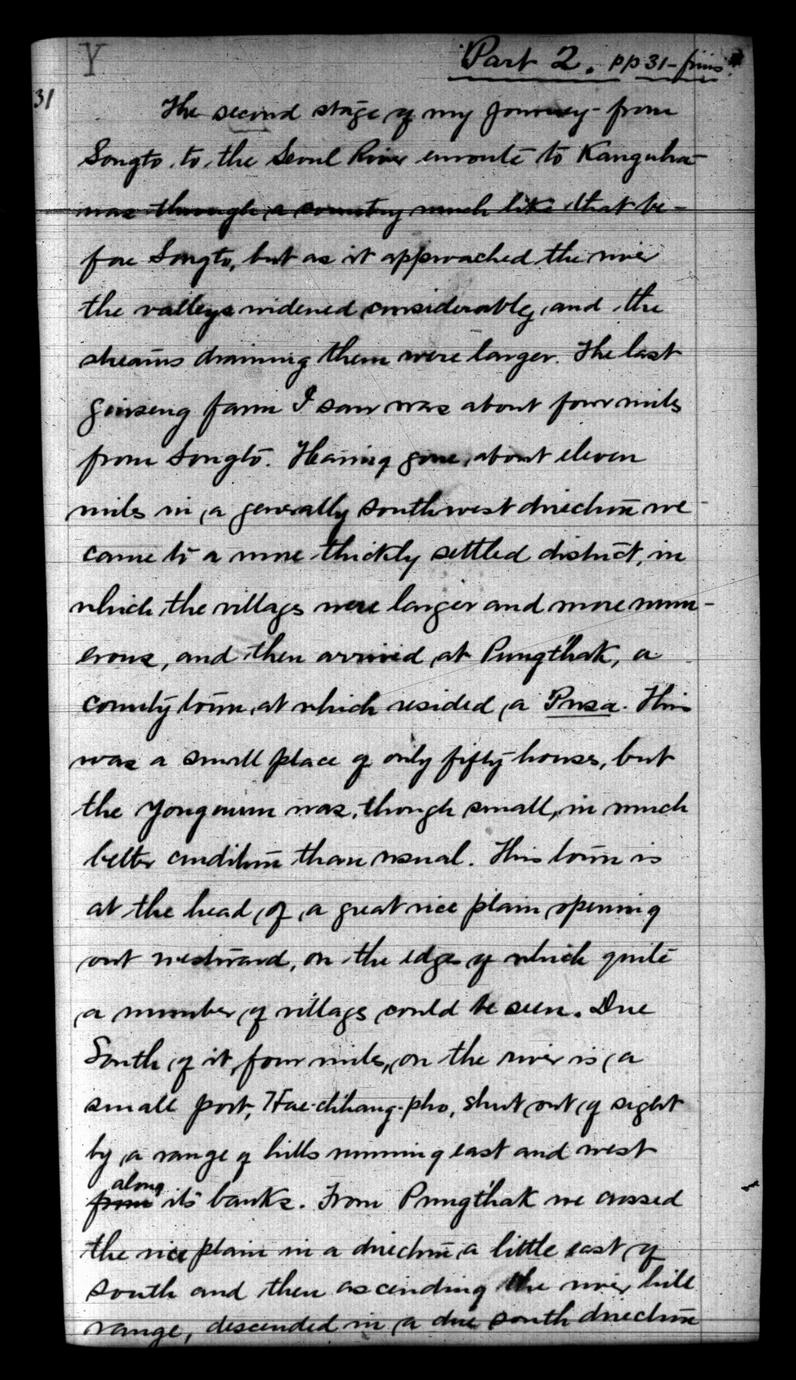 Y
Part 2. pp 31-finis
31
The second stage of my journey from
Songto to the Seoul River enroute to Kanghwa
was through a country much like that be-
fore Songto, but as it approached the river
the valleys widened considerably, and the
streams draining them were larger. The last
ginseng farm I saw was about four miles
from Songto. Having gone about eleven
miles in a generally southwest direction we
came to a more thickly settled district, in
which the villages were larger and more num-
erous, and then arrived at Pungthak, a
county town, at which resided a Pusa. This
was a small place of only fifty houses, but
the Yongmun was, though small, in much
better condition than usual. This town is
at the head of a great rice plain opening
out westward, on the edge of which quite
a number of villages could be seen. Due
South of it, four miles, on the river is a
small port, Hae-chhang-pho, shut out of sight
by a range of hills running east and west
along
from its banks. From Pungthak we crossed
the rice plain in a direction a little east of
south and then ascending the river hill
range, descended in a due south direction